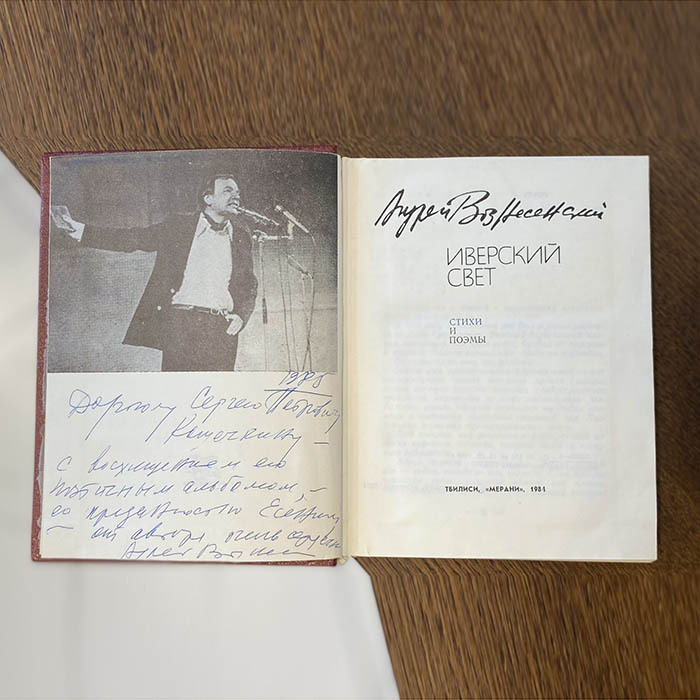 1985
Дорогому Сергею Петровичу
Кошечкину —
с восхищением его
поэтичным альбомом, —
его преданностью Есенину
— от автора очень
Андрей Возн
Андрей Вознесенский
ИВЕРСКИЙ
СВЕТ
СТИХИ
И
ПОЭМЫ
ТБИЛИСИ, «МЕРАНИ», 1984